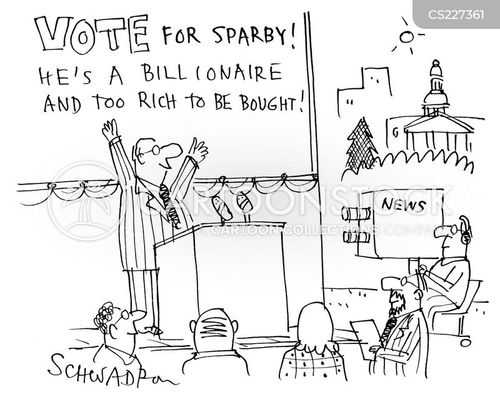 CS227361
VOTE FOR SPARBY!
HE'S A BILLIONAIRE
AND TOO RICH TO BE BOUGHT!
NEWS
CARTOONSTOCK
CARTOON COLLECTIONS COMPANY
SCHWADRON